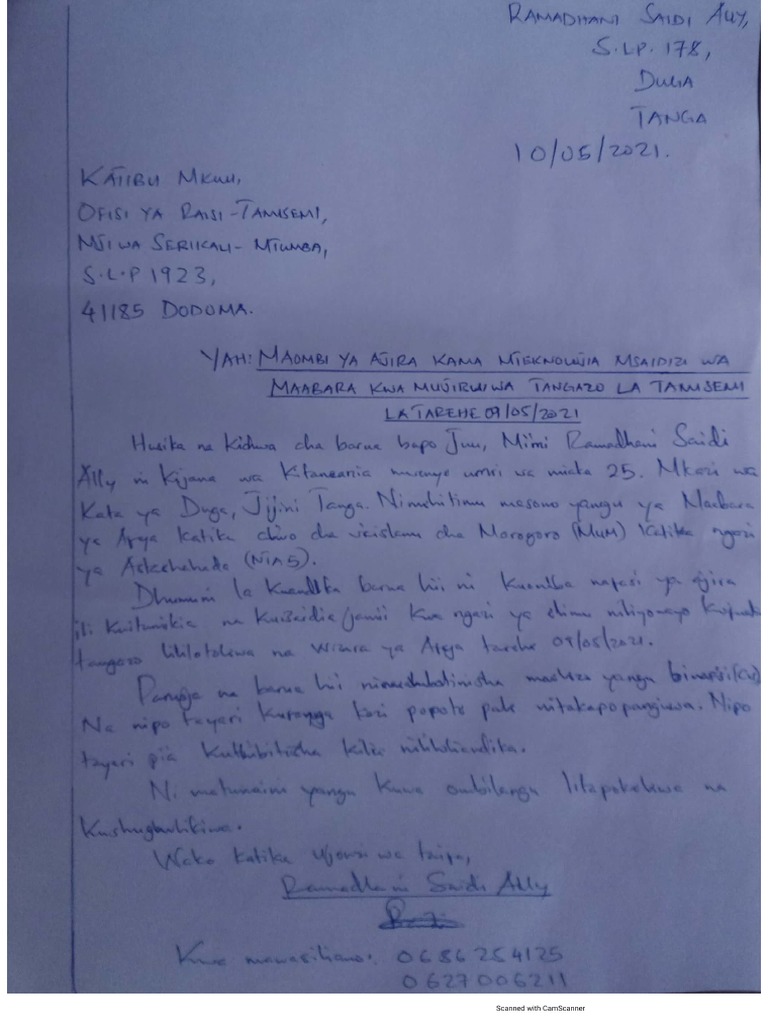 RAMADHANI SAIDI ALLY,
S.LP. 178,
DUGA
TANGA
10/05/2021.
KATIBU MKUU,
OFISI YA RAISI-TAMISEMI,
MJI WA SERIKALI- MTUMBA,
S.L.P 1923,
41185 DODOMA.
YAH: MAOMBI YA AJIRA KAMA MTEKNOLOJIA MSAIDIZI WA
MAABARA KWA MUJIBU WA TANGAZO LA TAMISEMI
LA TAREHE 09/05/2021
Husika na kichwa cha barua hapo Juu, Mimi Ramadhani Saidi
Ally ni Kijana wa Kitanzania mwenye umri wa miaka 25. Mkazi wa
Kata ya Duga, Jijini Tanga. Nimehitimu masomo yangu ya Maabara
ya Afya Katika chuo cha waislamu cha Morogoro (MUM) Katika ngazi
ya (NTA 5).
Dhumuni la Kuandika barua hii ni Kuomba nafasi ya ajira
ili Kuitumikia na Kuisaidia jamii Kwa ngazi ya elimu niliyonayo
tangazo lililotolewa na Wizara ya Afya tarehe 09/05/2021.
Pamoja na barua hii maelezo yangu binafsi (CV)
Na nipo tayari Kufanya kazi popote pale nitakapopangiwa. Nipo
tayari pia Kuthibitisha Kile nilichoandika.
Ni matumaini yangu Kuwa ombi langu litapokelewa na
Kushughulikiwa.
Wako Katika Ujenzi wa taifa,
Ramadhani Saidi Ally
Kwa mawasiliano: 0686254125
0627006211
Scanned with CamScanner